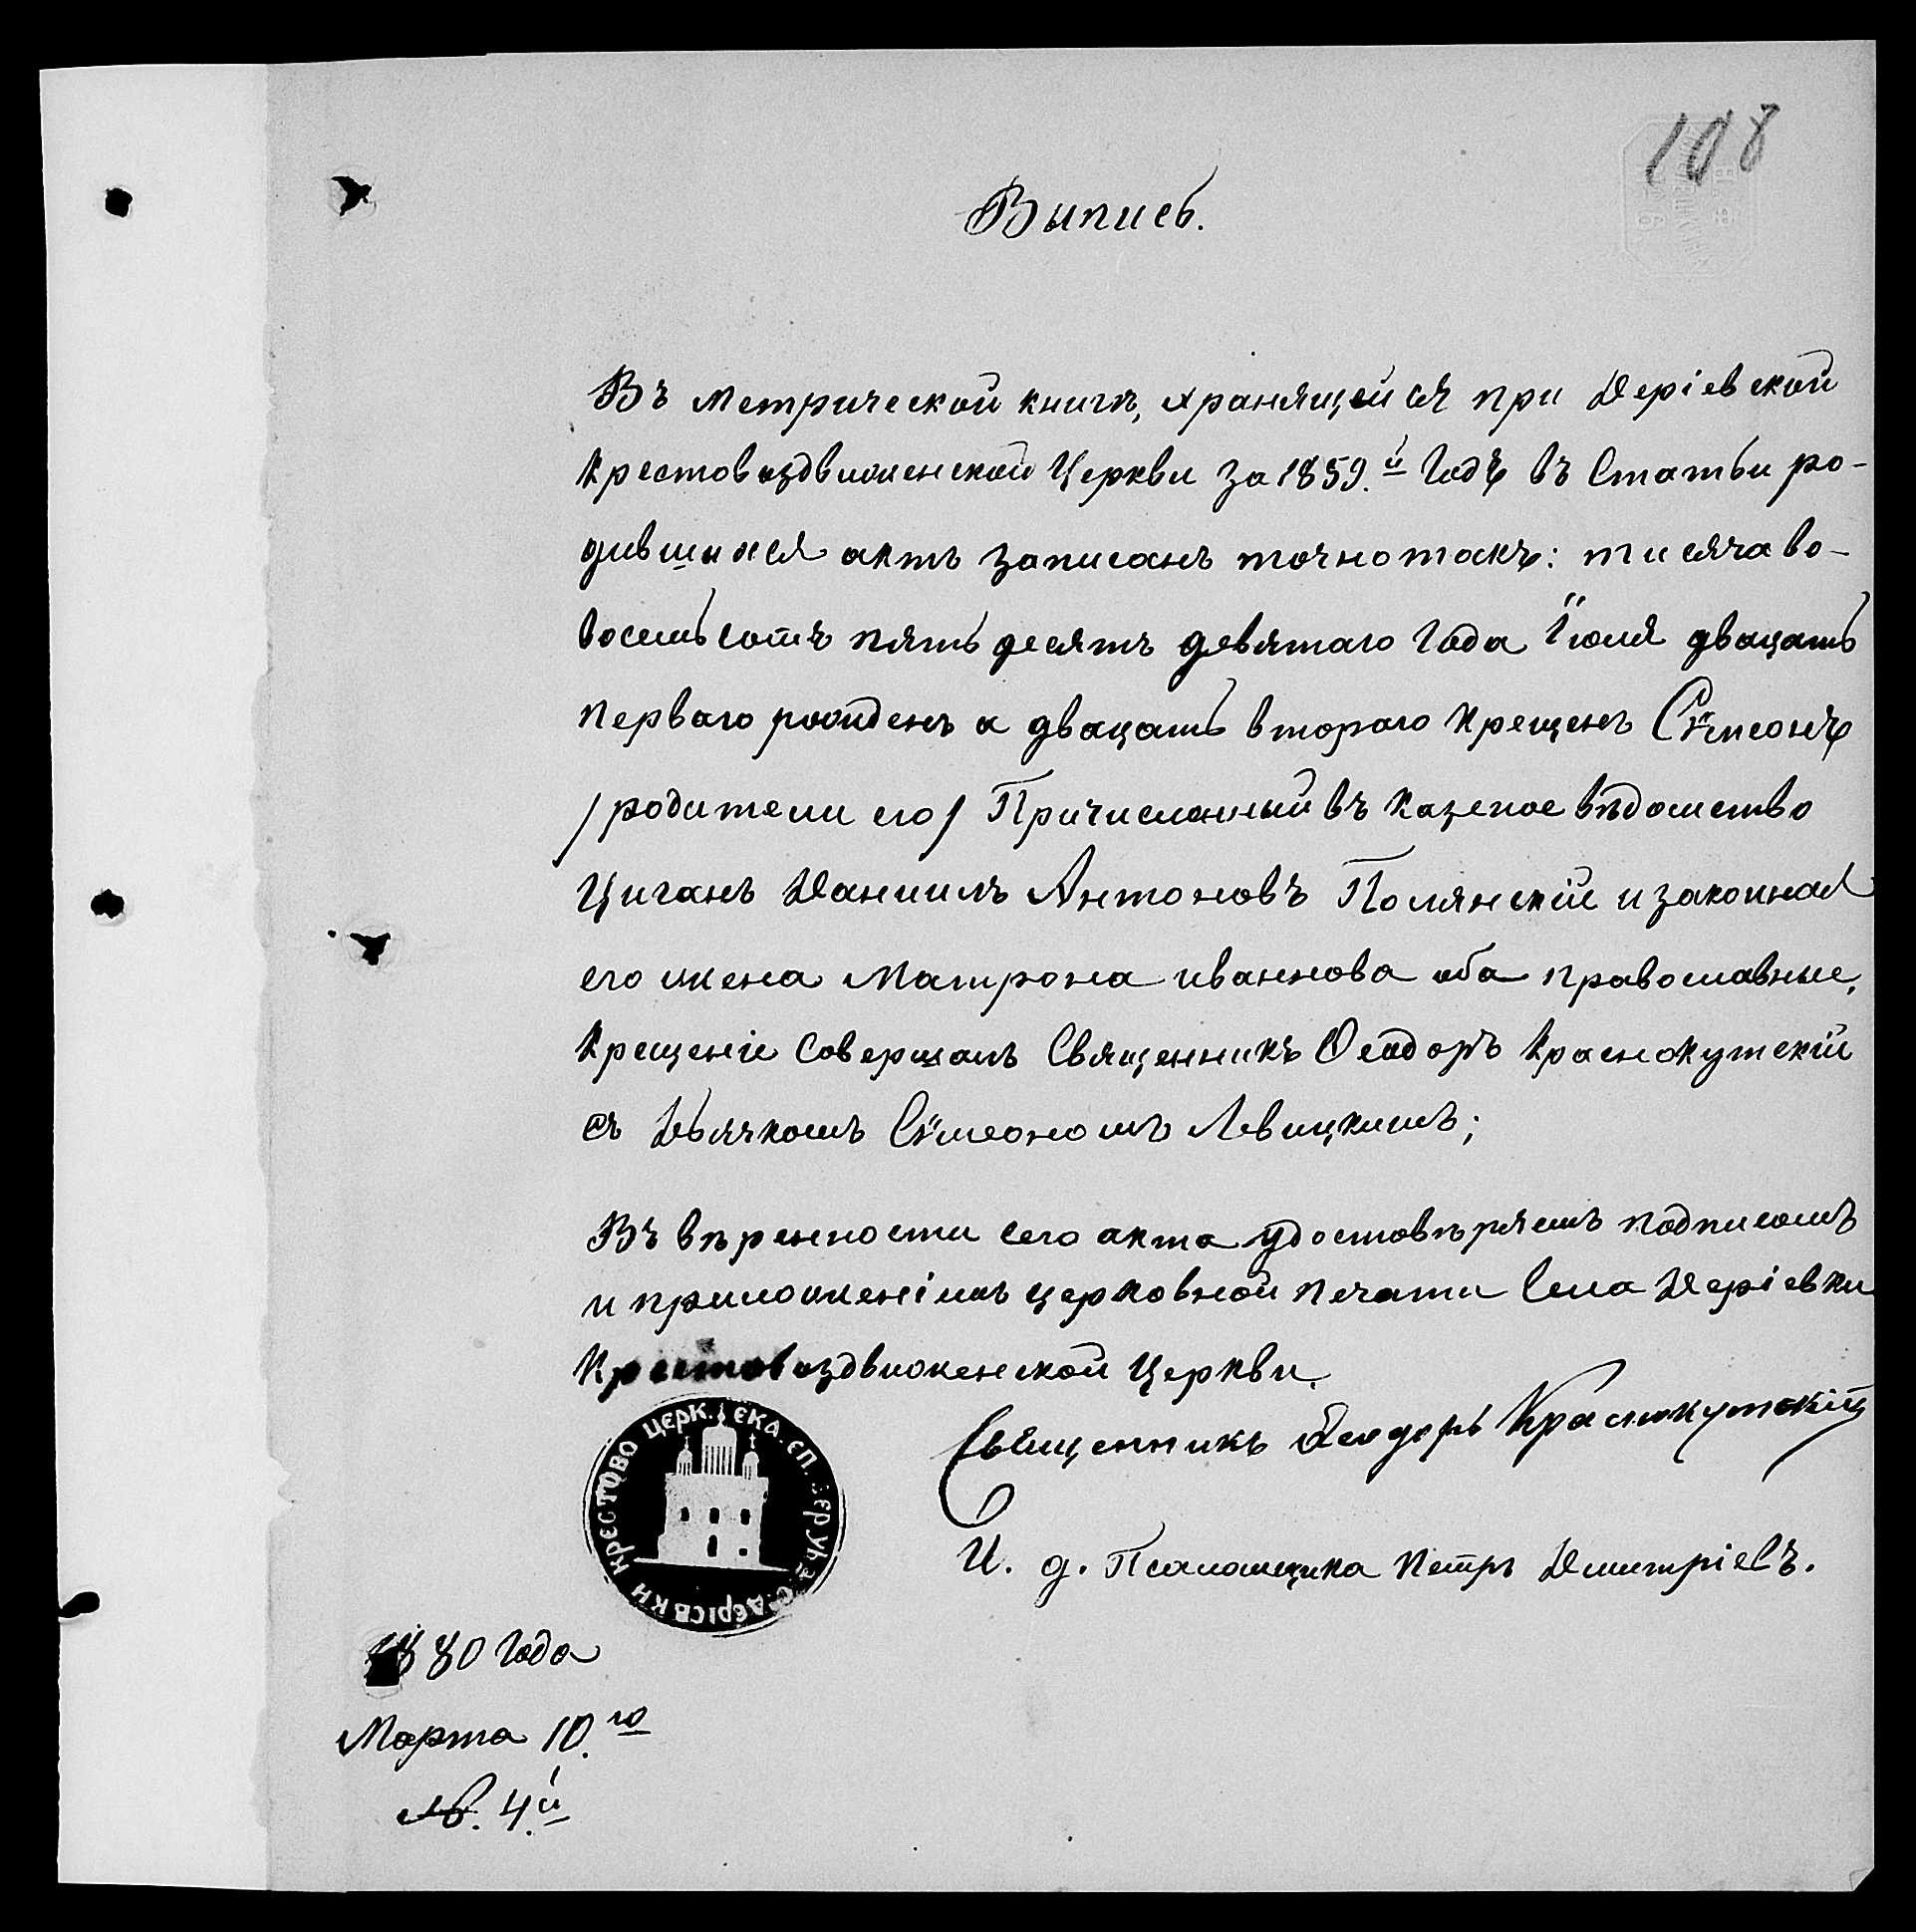 108
Выпись.
Въ метрической книгѣ, хранящейся при Деріевской
Крестовоздвиженской Церкви за 1859.й Годъ въ Статьи ро-
дившихся актъ записанъ точно такъ: тисяча во-
восемьсотъ пятьдесятъ девятаго Года Іюля двацать
перваго рожденъ а двацать втораго крещенъ Сѵмеонъ
/родители его/ Причисланный въ казеное вѣдомство
Циганъ Даниилъ Антоновъ Полянскій и законная
его жена Матрона иваннова оба православные,
Крещеніе совершалъ Священникъ Ѳеодоръ Краснокутскій
съ Дьячкомъ Сѵмеономъ Левицкимъ;
Въ вѣренности сего акта удостовѣряемъ подписомъ
и приложеніимъ церковной печати Села Деріевки
Крестовоздвиженской Церкви.
КРЕСТОВО ЦЕРК. ЕКА. ЕП. ВЕР УѢ. С. ДЕРІЕВКИ
Священникъ Ѳеодоръ Краснокутскій
И. д. Псаломщика Петръ Димитріевъ.
1880 Года
Марта 10.го
№. 4.й